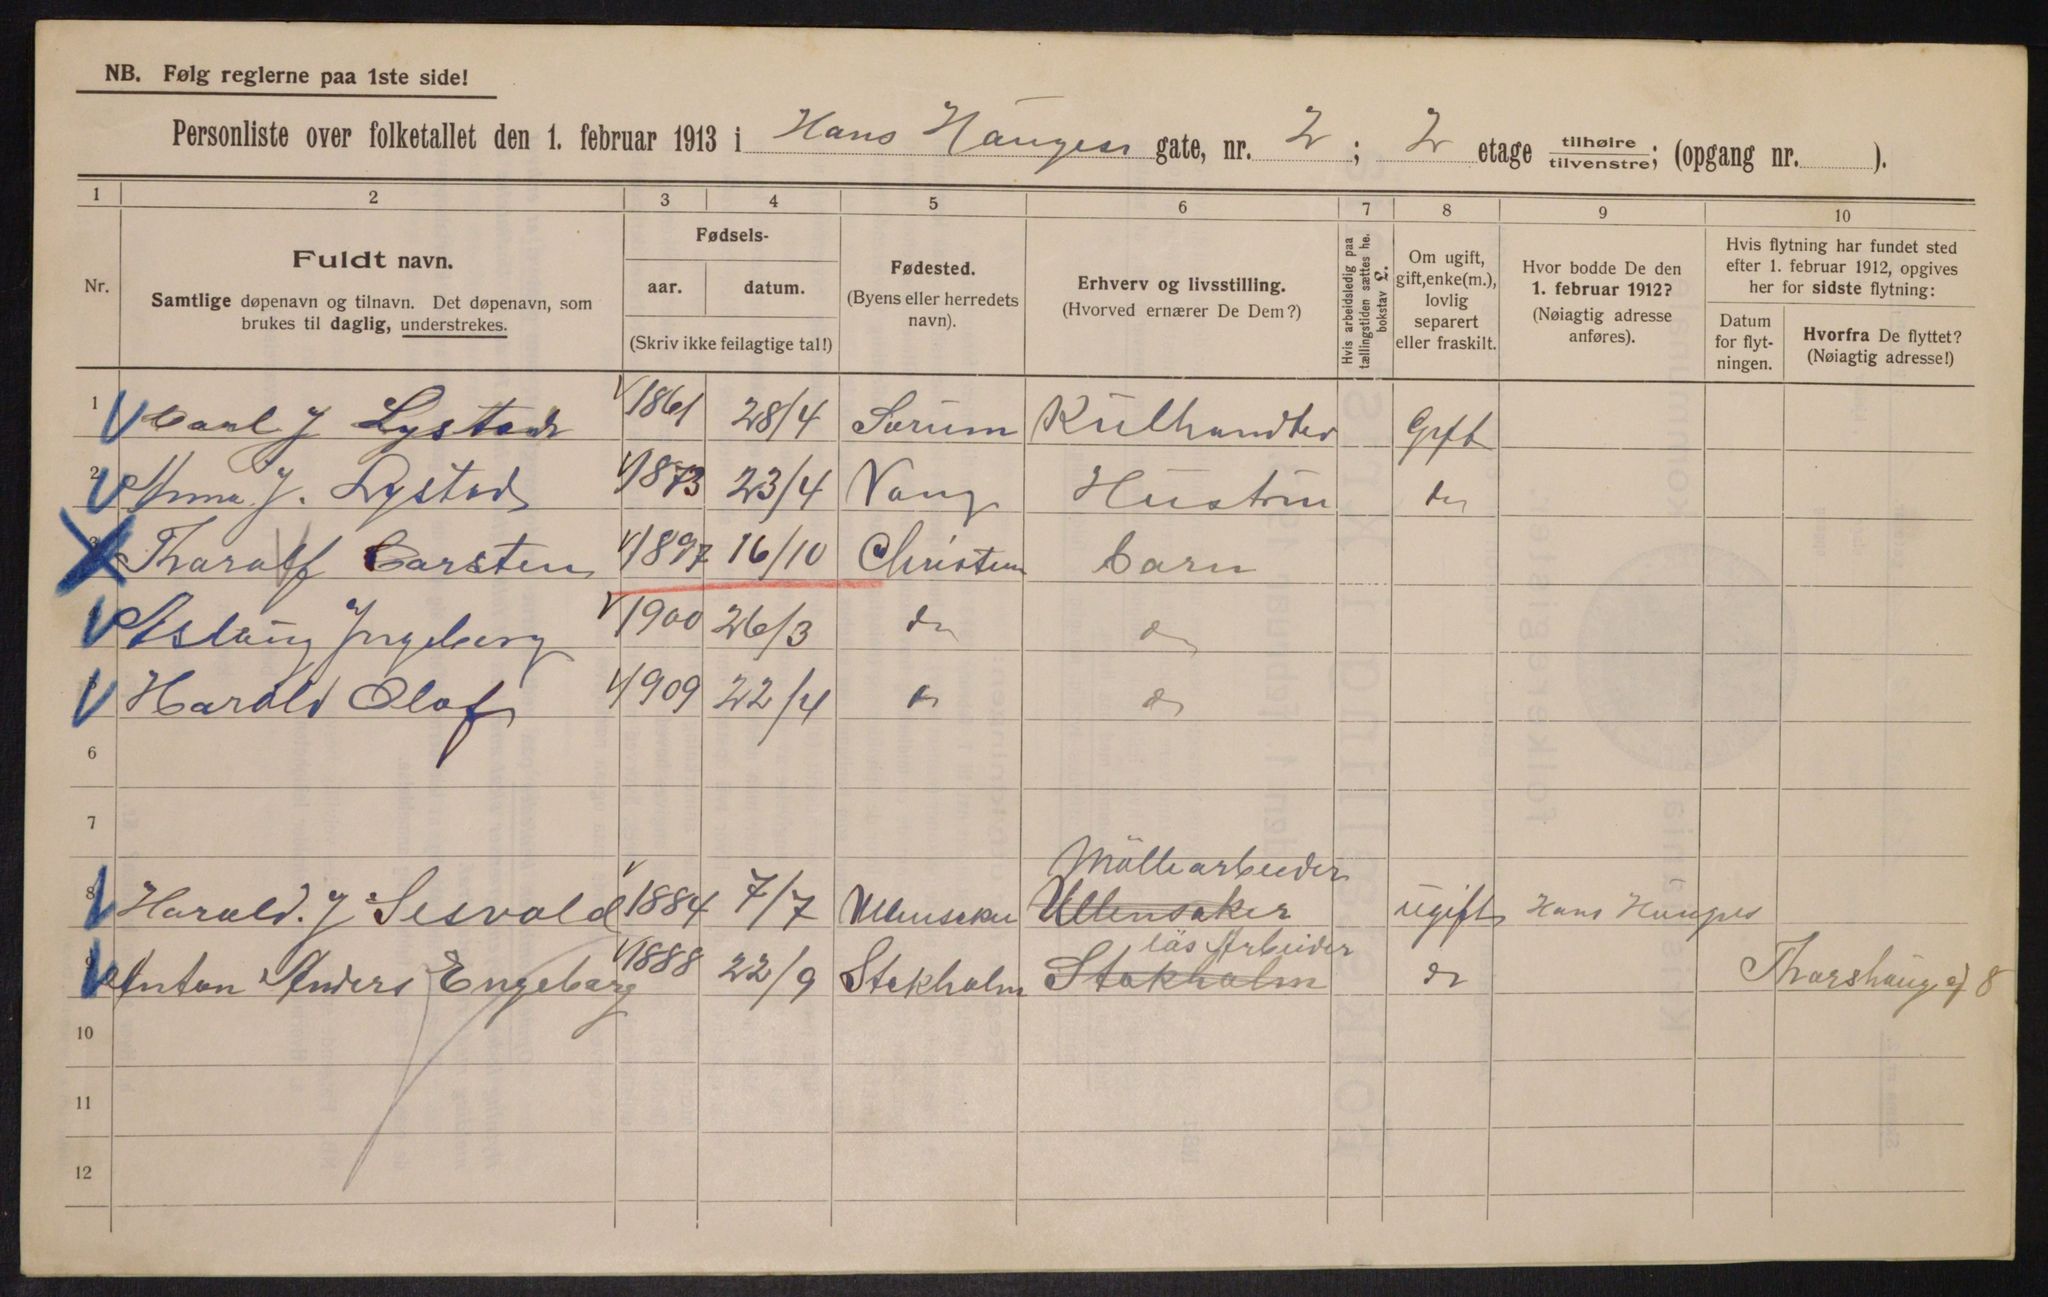 NB. Følg reglerne paa 1ste side!
Personliste over folketallet den 1. februar 1913 i Hans Hauges gate, nr. 2; 2 etage tilhøire/tilvenstre; (opgang nr. ).
1 2 3 4 5 6 7 8 9 10
Nr.
Fuldt navn.
Samtlige døpenavn og tilnavn. Det døpenavn, som
brukes til daglig, understrekes.
Fødsels-
aar. datum.
(Skriv ikke feilagtige tal!)
Fødested.
(Byens eller herredets
navn).
Erhverv og livsstilling.
(Hvorved ernærer De Dem?)
Hvis arbeidsledig paa
tællingstiden sættes he.
bokstav £.
Om ugift,
gift, enke(m.),
lovlig
separert
eller fraskilt.
Hvor bodde De den
1. februar 1912?
(Nøiagtig adresse
anføres).
Hvis flytning har fundet sted
efter 1. februar 1912, opgives
her for sidste flytning:
Datum
for flyt-
ningen.
Hvorfra De flyttet?
(Nøiagtig adresse!)
1 Carl J Lystad 1861 28/4 Sørum Kulhandler Gift
2 Anna J. Lystad 1873 23/4 Vang Hustru do
3 Tharalf Carsten 1897 16/10 Christenia barn
Aslaug Ingeborg 1900 26/3 do do
5 Harald Olaf 1909 22/4 do do
6
7
Möllearbeider
8 Harald. J Sesvold 1884 7/7 Ullensaker Ullensaker ugift Hans Hauges
läs Arbeider
9 Anton Anders Engeborg 1888 22/9 Stokholm Stokholm do Tharshaug g 8
10
11
12